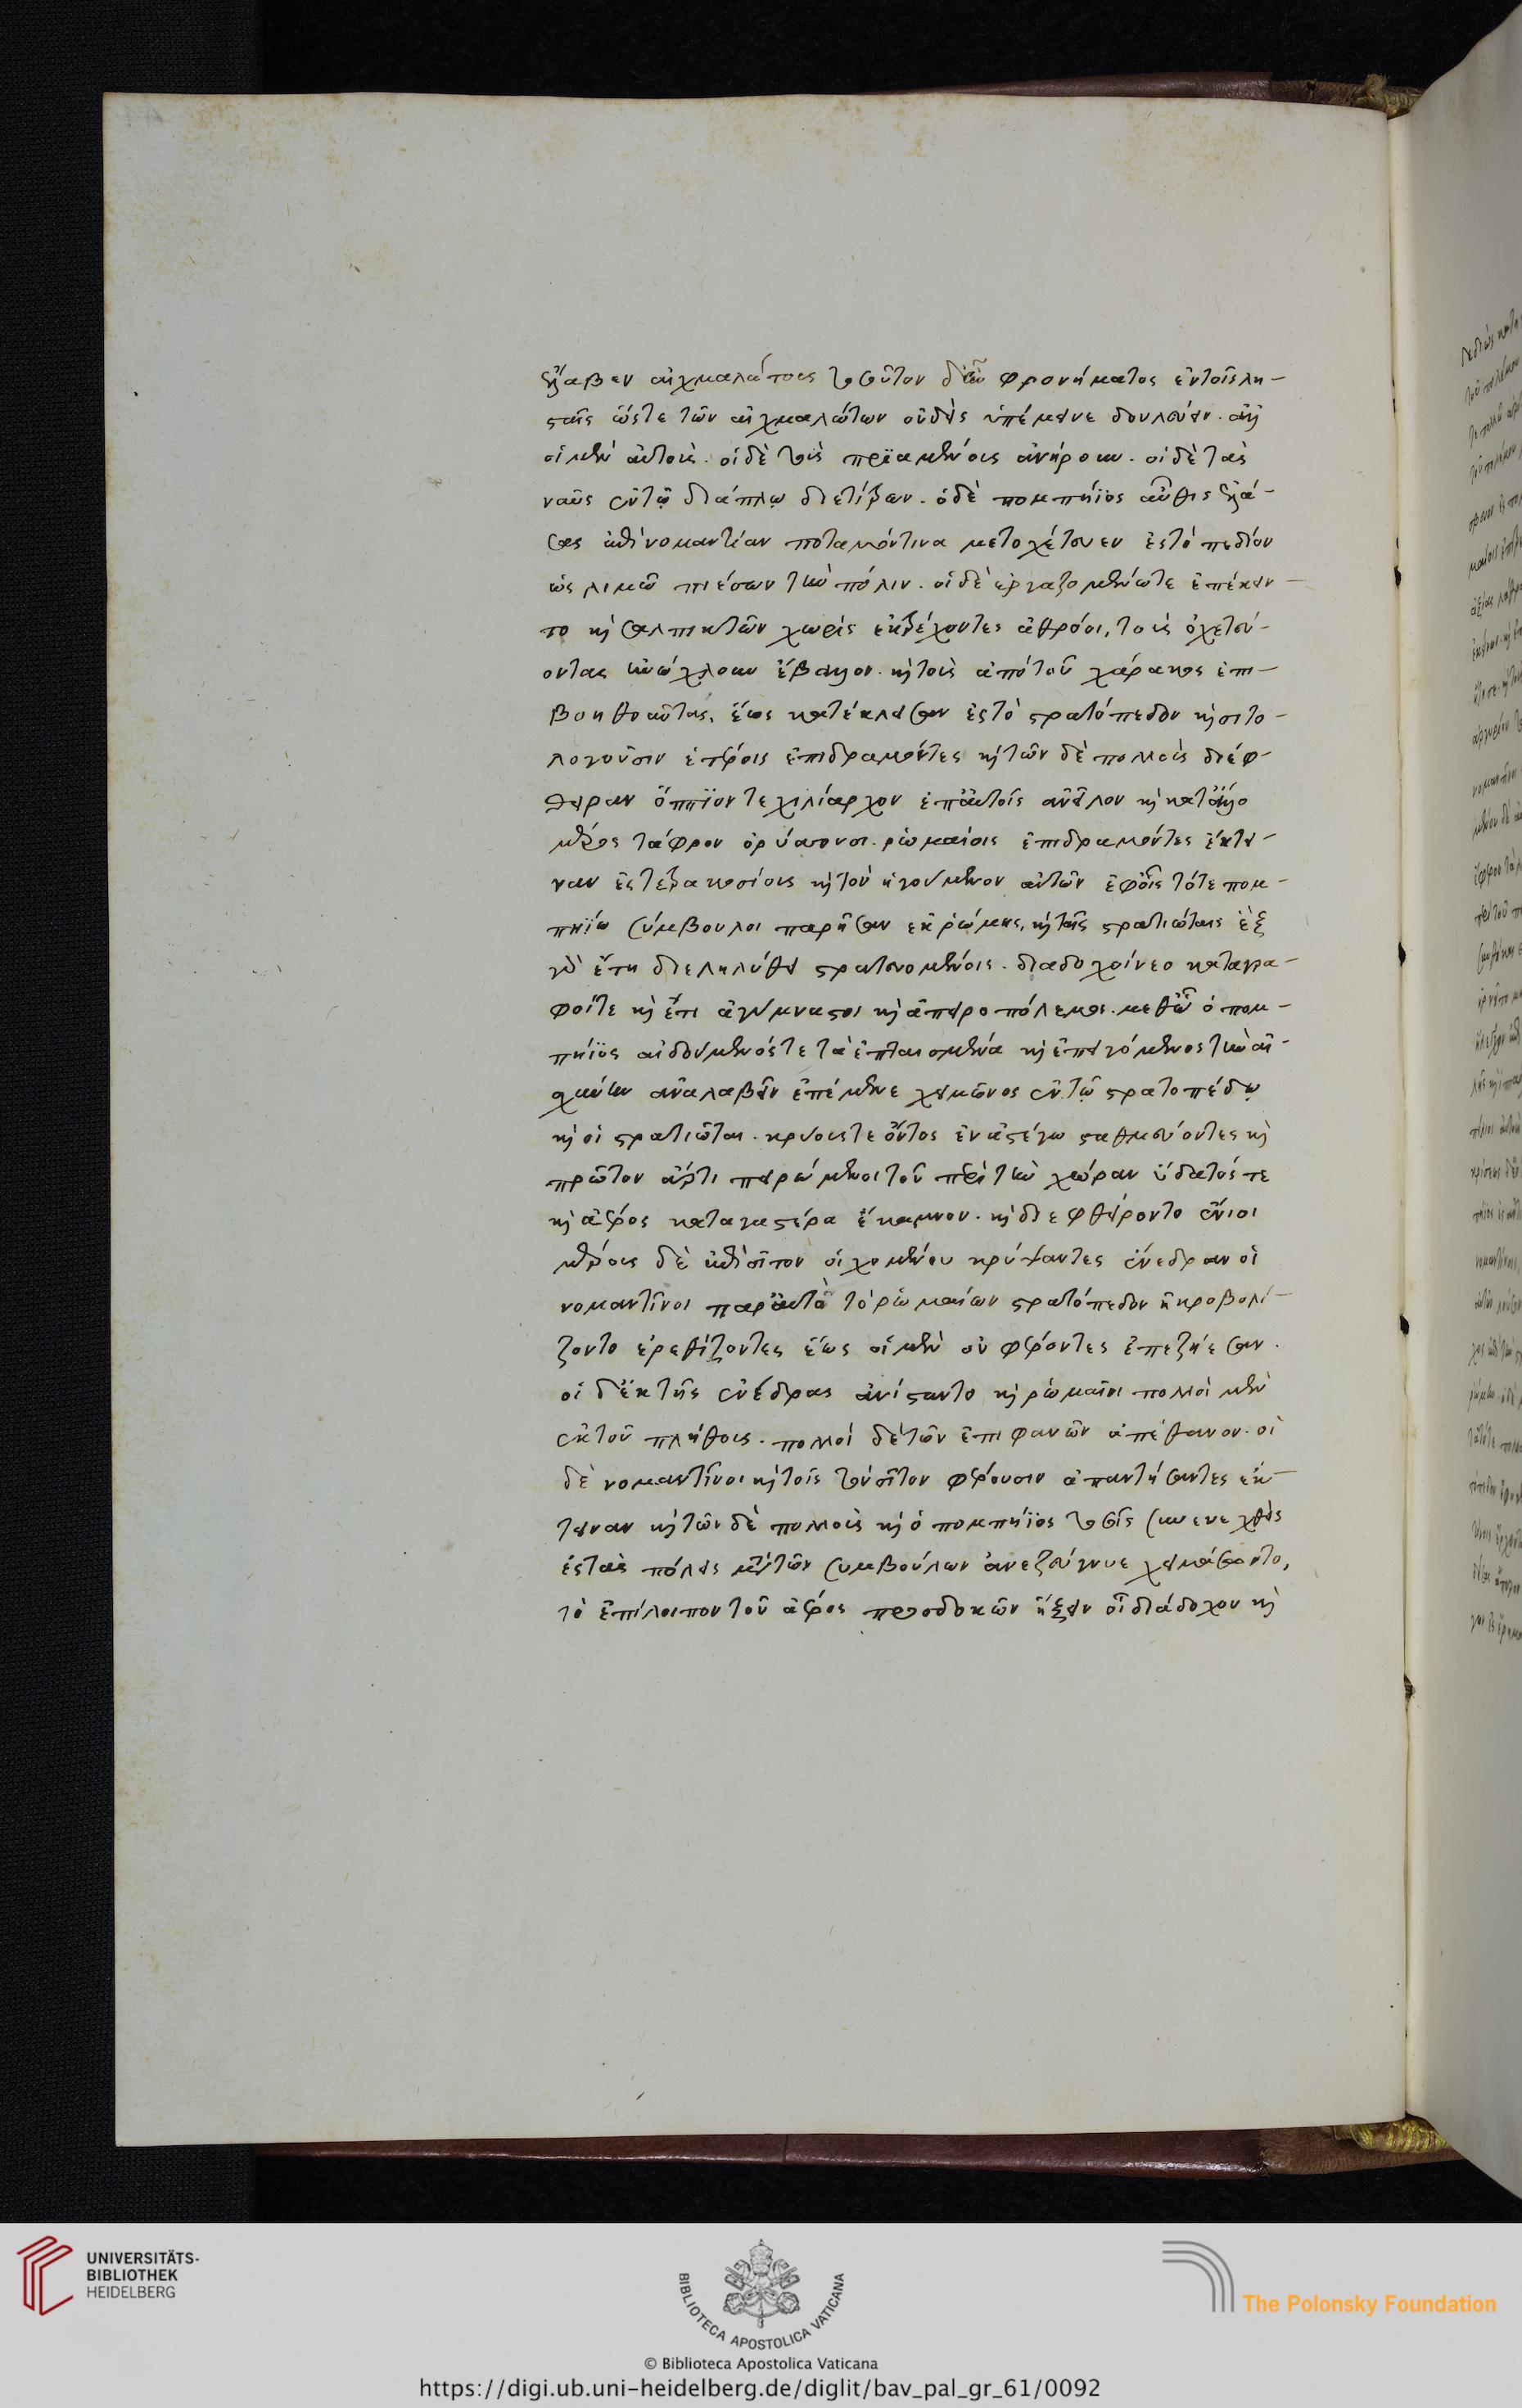 ἔλαβεν αἰχμαλώτους τοσοῦτον δ' ἦν φρονήματος ἐν τοῖς λῃ-
σταῖς ὥστε τῶν αἰχμαλώτων οὐδεὶς ὑπέμεινε δουλεύειν. ἀλλ'
οἱ μὲν αὑτοὺς. οἱ δὲ τοὺς πριαμένους ἀνήρουν. οἱ δὲ τὰς
ναῦς ἐν τῷ διάπλῳ διετίτρων. ὁ δὲ πομπήϊος αὖθις ἐλά-
σας ἐπὶ νομαντίαν ποταμόν τινα μετοχέτευεν ἐς τὸ πεδίον
ὡς λιμῷ πιέσων τὴν πόλιν. οἱ δὲ ἐργαζομένῳ τε ἐπέκειν-
το καὶ σαλπικτῶν χωρὶς ἐκτρέχοντες ἀθρόοι, τοὺς ὀχετεύ-
οντας ἠνώχλουν ἔβαλλον. καὶ τοὺς ἀπὸ τοῦ χάρακος ἐπι-
βοηθοῦντας, ἕως κατέκλεισαν ἐς τὸ στρατόπεδον καὶ σιτο-
λογοῦσιν ἑτέροις ἐπιδραμόντες καὶ τῶνδὲ πολλοὺς διέφ-
θειραν ὄππιόν τε χιλίαρχον ἐπ' αὐτοῖς ἀνεῖλον καὶ κατ' ἄλλο
μέρος τάφρον ὀρύσσουσι. ῥωμαίοις ἐπιδραμόντες ἔκτει-
ναν ἐς τετρακοσίους καὶ τὸν ἡγούμενον αὐτῶν ἐφ' οἷς τότε πομ-
πηΐῳ σύμβουλοι παρῆσαν ἐκ ῥώμης, καὶ τοῖς στρατιώταις ἓξ
γὰρ ἔτη διεληλύθει στρατευομένοις. διάδοχοι νεο κατάγρα-
φοί τε καὶ ἔτι ἀγύμναστοι καὶ ἀπειροπόλεμοι. μεθ' ὧν ὁ πομ-
πήϊος αἰδούμενός τε τὰ ἐπταισμένα καὶ ἐπειγόμενος τὴν αἰ-
σχύνην ἀναλαβεῖν ἐπέμενε χειμῶνος ἐν τῷ στρατοπέδῳ
καὶ οἱ στρατιῶται. κρύους τε ὄντος ἐν ἀστέγῳ σταθμεύοντες καὶ
πρῶτον ἄρτι πειρώμενοι τοῦ περὶ τὴν χώραν ὕδατός τε
καὶ ἀέρος κατὰ γαστέρα ἔκαμνον. καὶ διεφθείροντο ἔνιοι
μέρους δὲ ἐπὶ σῖτον οἰχομένου κρύψαντες ἐνέδραν οἱ
νομαντῖνοι παρ' αὐτὸ τὸ ῥωμαίων στρατόπεδον ἠκροβολί-
ζοντο ἐρεθίζοντες ἕως οἱ μὲν οὐ φέροντες ἐπεξῄεσαν.
οἱ δ' ἐκ τῆς ἐνέδρας ἀνίσταντο καὶ ῥωμαῖοι πολλοὶ μὲν
ἐκ τοῦ πλήθους. πολλοὶ δὲ τῶν ἐπιφανῶν ἀπέθανον. οἱ
δὲ νομαντῖνοι καὶ τοῖς τὸν σῖτον φέρουσιν ἀπαντήσαντες ἔκ-
τειναν καὶ τῶνδὲ πολλοὺς καὶ ὁ πομπήϊος τοσοῖσδε συνενεχθεὶς
ἐς τὰς πόλεις μετὰ τῶν συμβούλων ἀνεζεύγνυε χειμάσοντο,
τὸ ἐπίλοιπον τοῦ ἀέρος προσδοκῶν ἥξειν οἷ διάδοχον καὶ
UNIVERSITÄTS-
BIBLIOTHEK
HEIDELBERG
BIBLIOTECA APOSTOLICA VATICANA
The Polonsky Foundation
© Biblioteca Apostolica Vaticana
https://digi.ub.uni-heidelberg.de/diglit/bav_pal_gr_61/0092